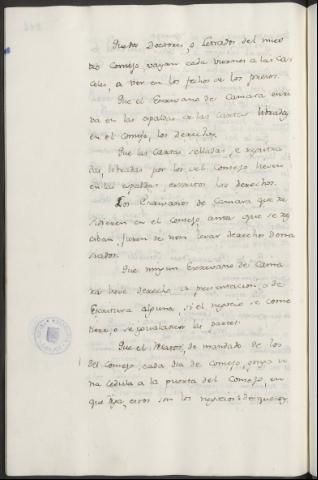 Que dos Doctores, o Letrados del nues
tro Consejo, vayan cada viernes a las Car
celes, a ver en los fechos de los presos.
Que el Escrivano de Camara escri
va en las espaldas de las cartas libradas
en el Consejo, los derechos.
Que las Cartas selladas, e registra
das, libradas por los del Consejo lleven
en las espaldas escritos los derechos.
Los Escrivanos de Camara que re
sidieren en el Consejo, antes que se re
ciban, juren de non levar derechos dema
siados.
Que ningun Escrivano de Cama
ra lieve derecho de presentacion, o de
Escritura alguna, si el negocio se come
tiere, o se igualaren las partes.
Que el Relator, de mandado de los
del Consejo, cada dia de consejo, ponga u
na cedula a la puerta del Consejo, en
que diga, estos son los negocios de que oy